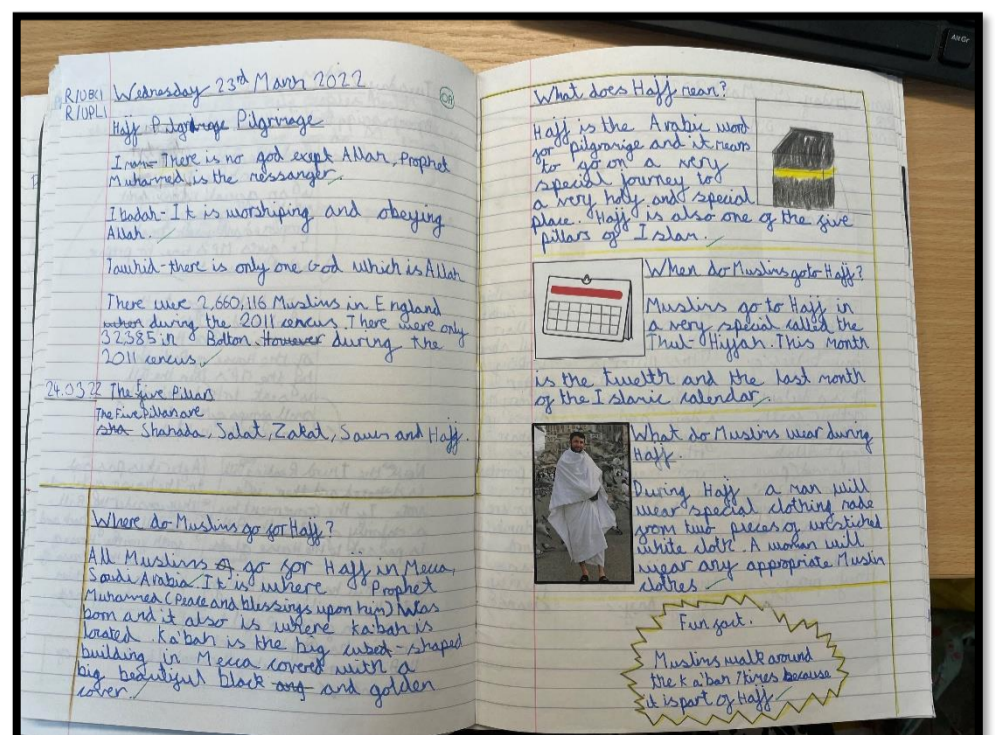 R/UBK1
R/UPL1
Wednesday 23rd March 2022
OR
Hajj Pilgrimage Pilgrimage
Iman- There is no god exept Allah, Prophet
Muhammed is the messanger.
Ibadah- It is worshiping and obeying
Allah.
Tawhid-there is only one God which is Allah
There were 2,660,116 Muslims in England
during the 2011 cencus. There were only
32385 in Bolton. However during the
2011 cencus.
24.03.22 The five Pillars
The Five Pillars are
sha- Shahada, Salat, Zakat, Sawm and Hajj.
Where do Muslims go for Hajj?
All Muslims go for Hajj in Mecca,
Saudi Arabia. It is where Prophet
Muhamed (Peace and blessings upon him) was
born and it also is where Ka'bah is
located. Ka'bah is the big cubed-shaped
building in Mecca covered with a
big beautiful black ang and golden
cover.
What does Hajj mean?
Hajj is the Arabic word
for pilgramige and it means
to go on a very
special journey to
a very holy and special
place. Hajj is also one of the five
pillars of Islam.
When do Muslims go to Hajj?
Muslims go to Hajj in
a very special called the
Thul-Hijjah. This month
is the twelth and the last month
of the Islamic calendar.
What do Muslims wear during
Hajj.
During Hajj a man will
wear special clothing made
from two pieces of unstiched
white cloth. A woman will
wear any appropriate Muslim
clothes.
Fun fact.
Muslims walk around
the ka'bah 7 times because
it is part of Hajj
Alt Gr